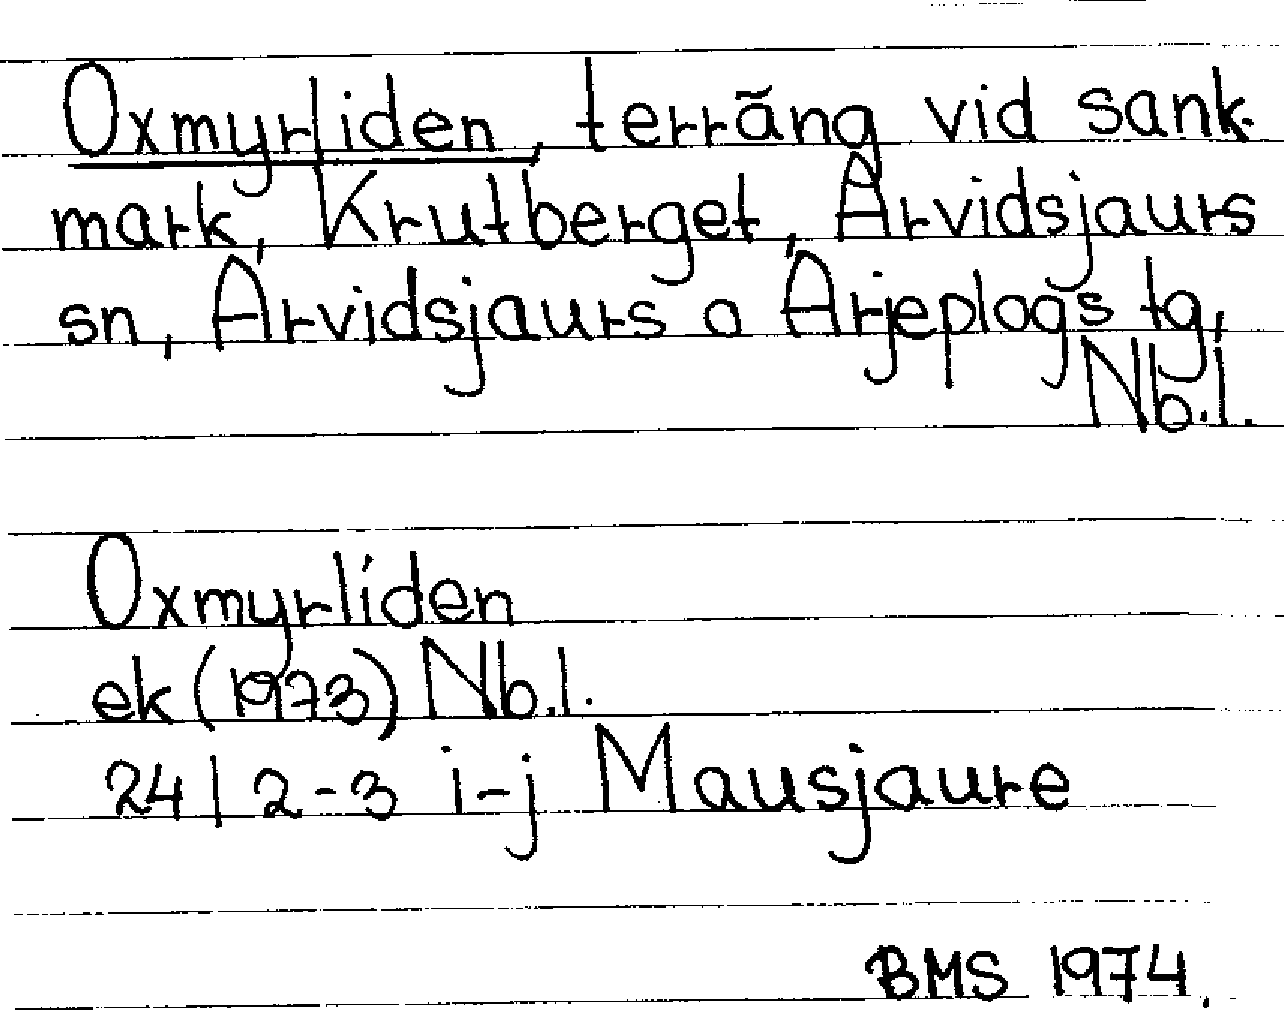 Oxmyrliden, terräng vid sank-
mark, Krutberget, Arvidsjaurs
sn, Arvidsjaurs o Arjeplogs tg,
Nb.l.
Oxmyrliden
ek (1973) Nb.l.
24 I 2-3 i-j Mausjaure
BMS 1974.